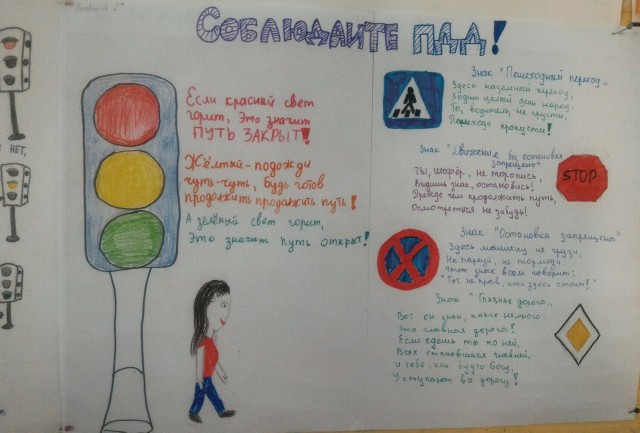 СОБЛЮДАЙТЕ ПДД!
Если красный свет
горит, Это значит
ПУТЬ ЗАКРЫТ!
Жёлтый - подожди
чуть-чуть, будь готов
продолжить продолжить путь!
А зелёный свет горит,
Это значит путь открыт!
Знак "Пешеходный переход"
Здесь наземный переход,
Ходит целый день народ.
Ты, водитель, не грусти,
Пешехода пропусти!
Знак "Движение без остановки
запрещено"
Ты, шофёр, не торопись,
Видишь знак, остановись!
Прежде чем продолжить путь,
Осмотреться не забудь!
STOP
Знак "Остановка запрещена"
Здесь машину не грузи,
Не паркуй, не тормози.
Этот знак всем говорит:
"Тот не прав, кто здесь стоит!"
Знак "Главная дорога"
Вот он знак, каких немного:
Это главная дорога!
Если едешь ты по ней,
Всех становишься главней,
И тебе, как будто богу,
Уступают все дорогу!
НЕТ,